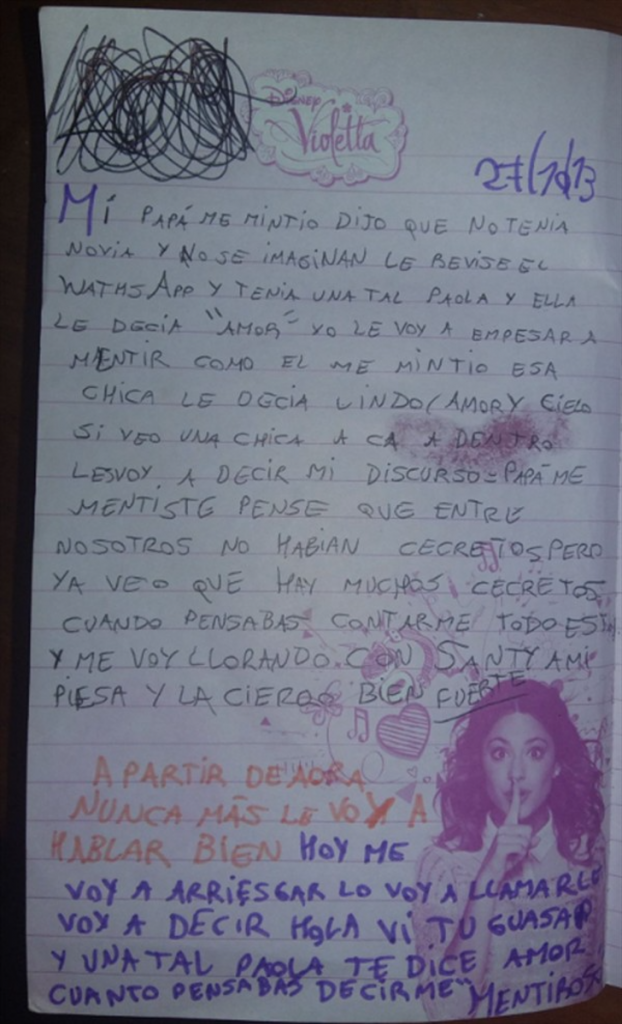 Disney
Violetta
27/10/13
MÍ PAPÁ ME MINTIO DIJO QUE NO TENIA
NOVIA Y NO SE IMAGINAN LE REVISE EL
WATHSAPP Y TENIA UNA TAL PAOLA Y ELLA
LE DECIA "AMOR" YO LE VOY A EMPESAR A
MENTIR COMO EL ME MINTIO ESA
CHICA LE DECIA LINDO/AMOR Y CIELO
SI VEO UNA CHICA A CA A DENTRO
LES VOY A DECIR MI DISCURSO=PAPÁ ME
MENTISTE PENSE QUE ENTRE
NOSOTROS NO HABIAN CECRETOS PERO
YA VEO QUE HAY MUCHOS CECRETOS
CUANDO PENSABAS CONTARME TODO ESTO
Y ME VOY LLORANDO CON SANTY A MI
PIESA Y LA CIERRO BIEN FUERTE
A PARTIR DE AORA
NUNCA MÁS LE VOY A
HABLAR BIEN HOY ME
VOY A ARRIESGAR LO VOY A LLAMAR LE
VOY A DECIR HOLA VI TU GUASAP
Y UNA TAL PAOLA TE DICE AMOR
CUANTO PENSABAS DECIRME" MENTIROSO